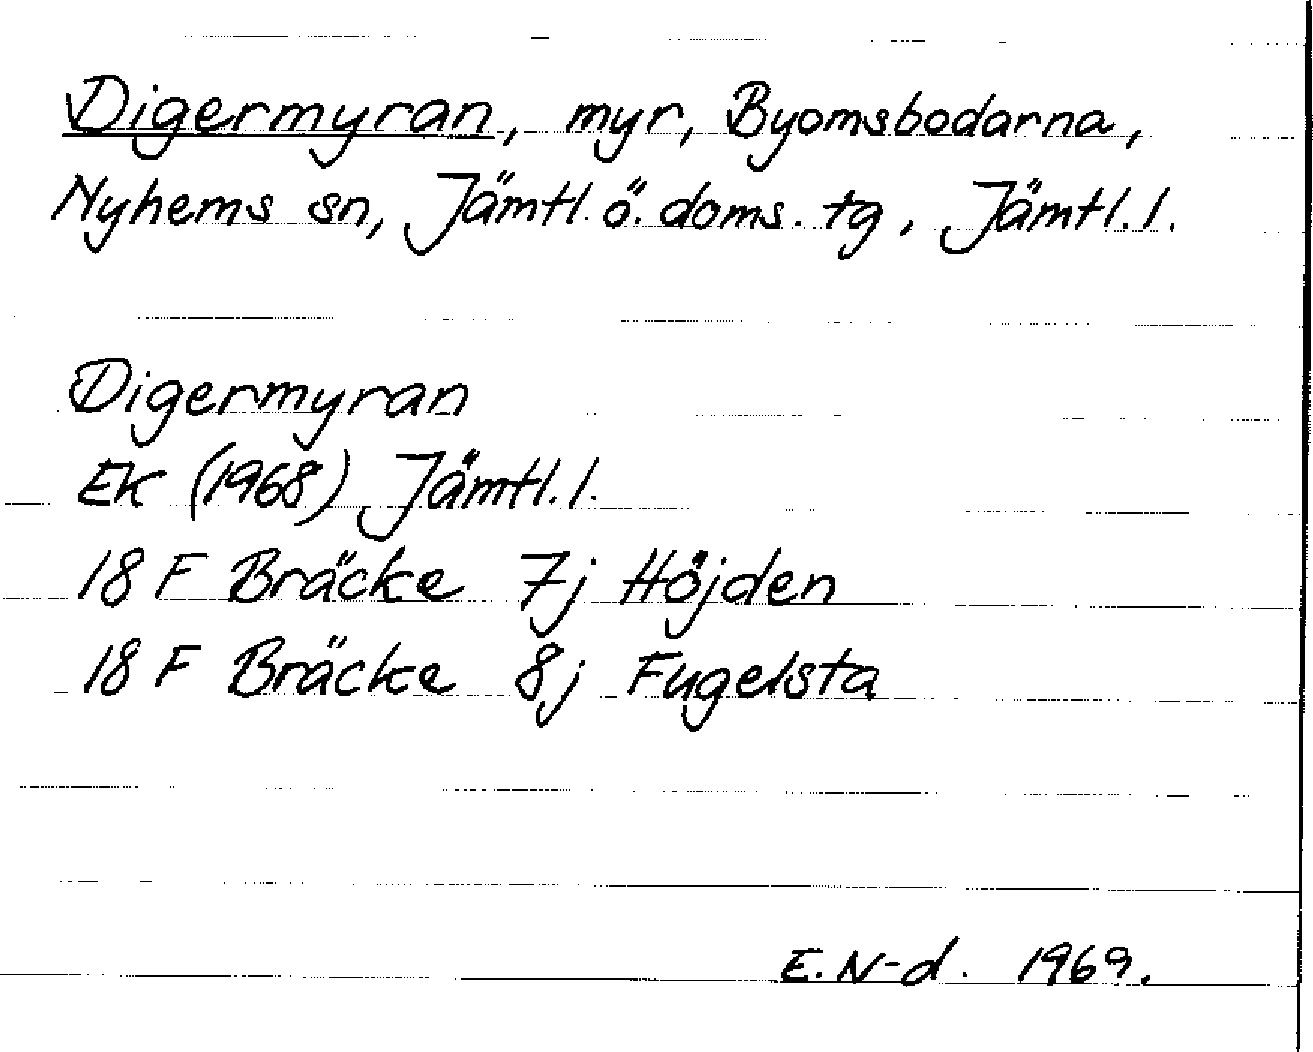 Digermyran, myr, Byomsbodarna,
Nyhems sn, Jämtl. ö. doms. tg, Jämtl. l.
Digermyran
EK (1968) Jämtl. l.
18 F Bräcke 7j Höjden
18 F Bräcke 8j Fugelsta
E. N-d. 1969.